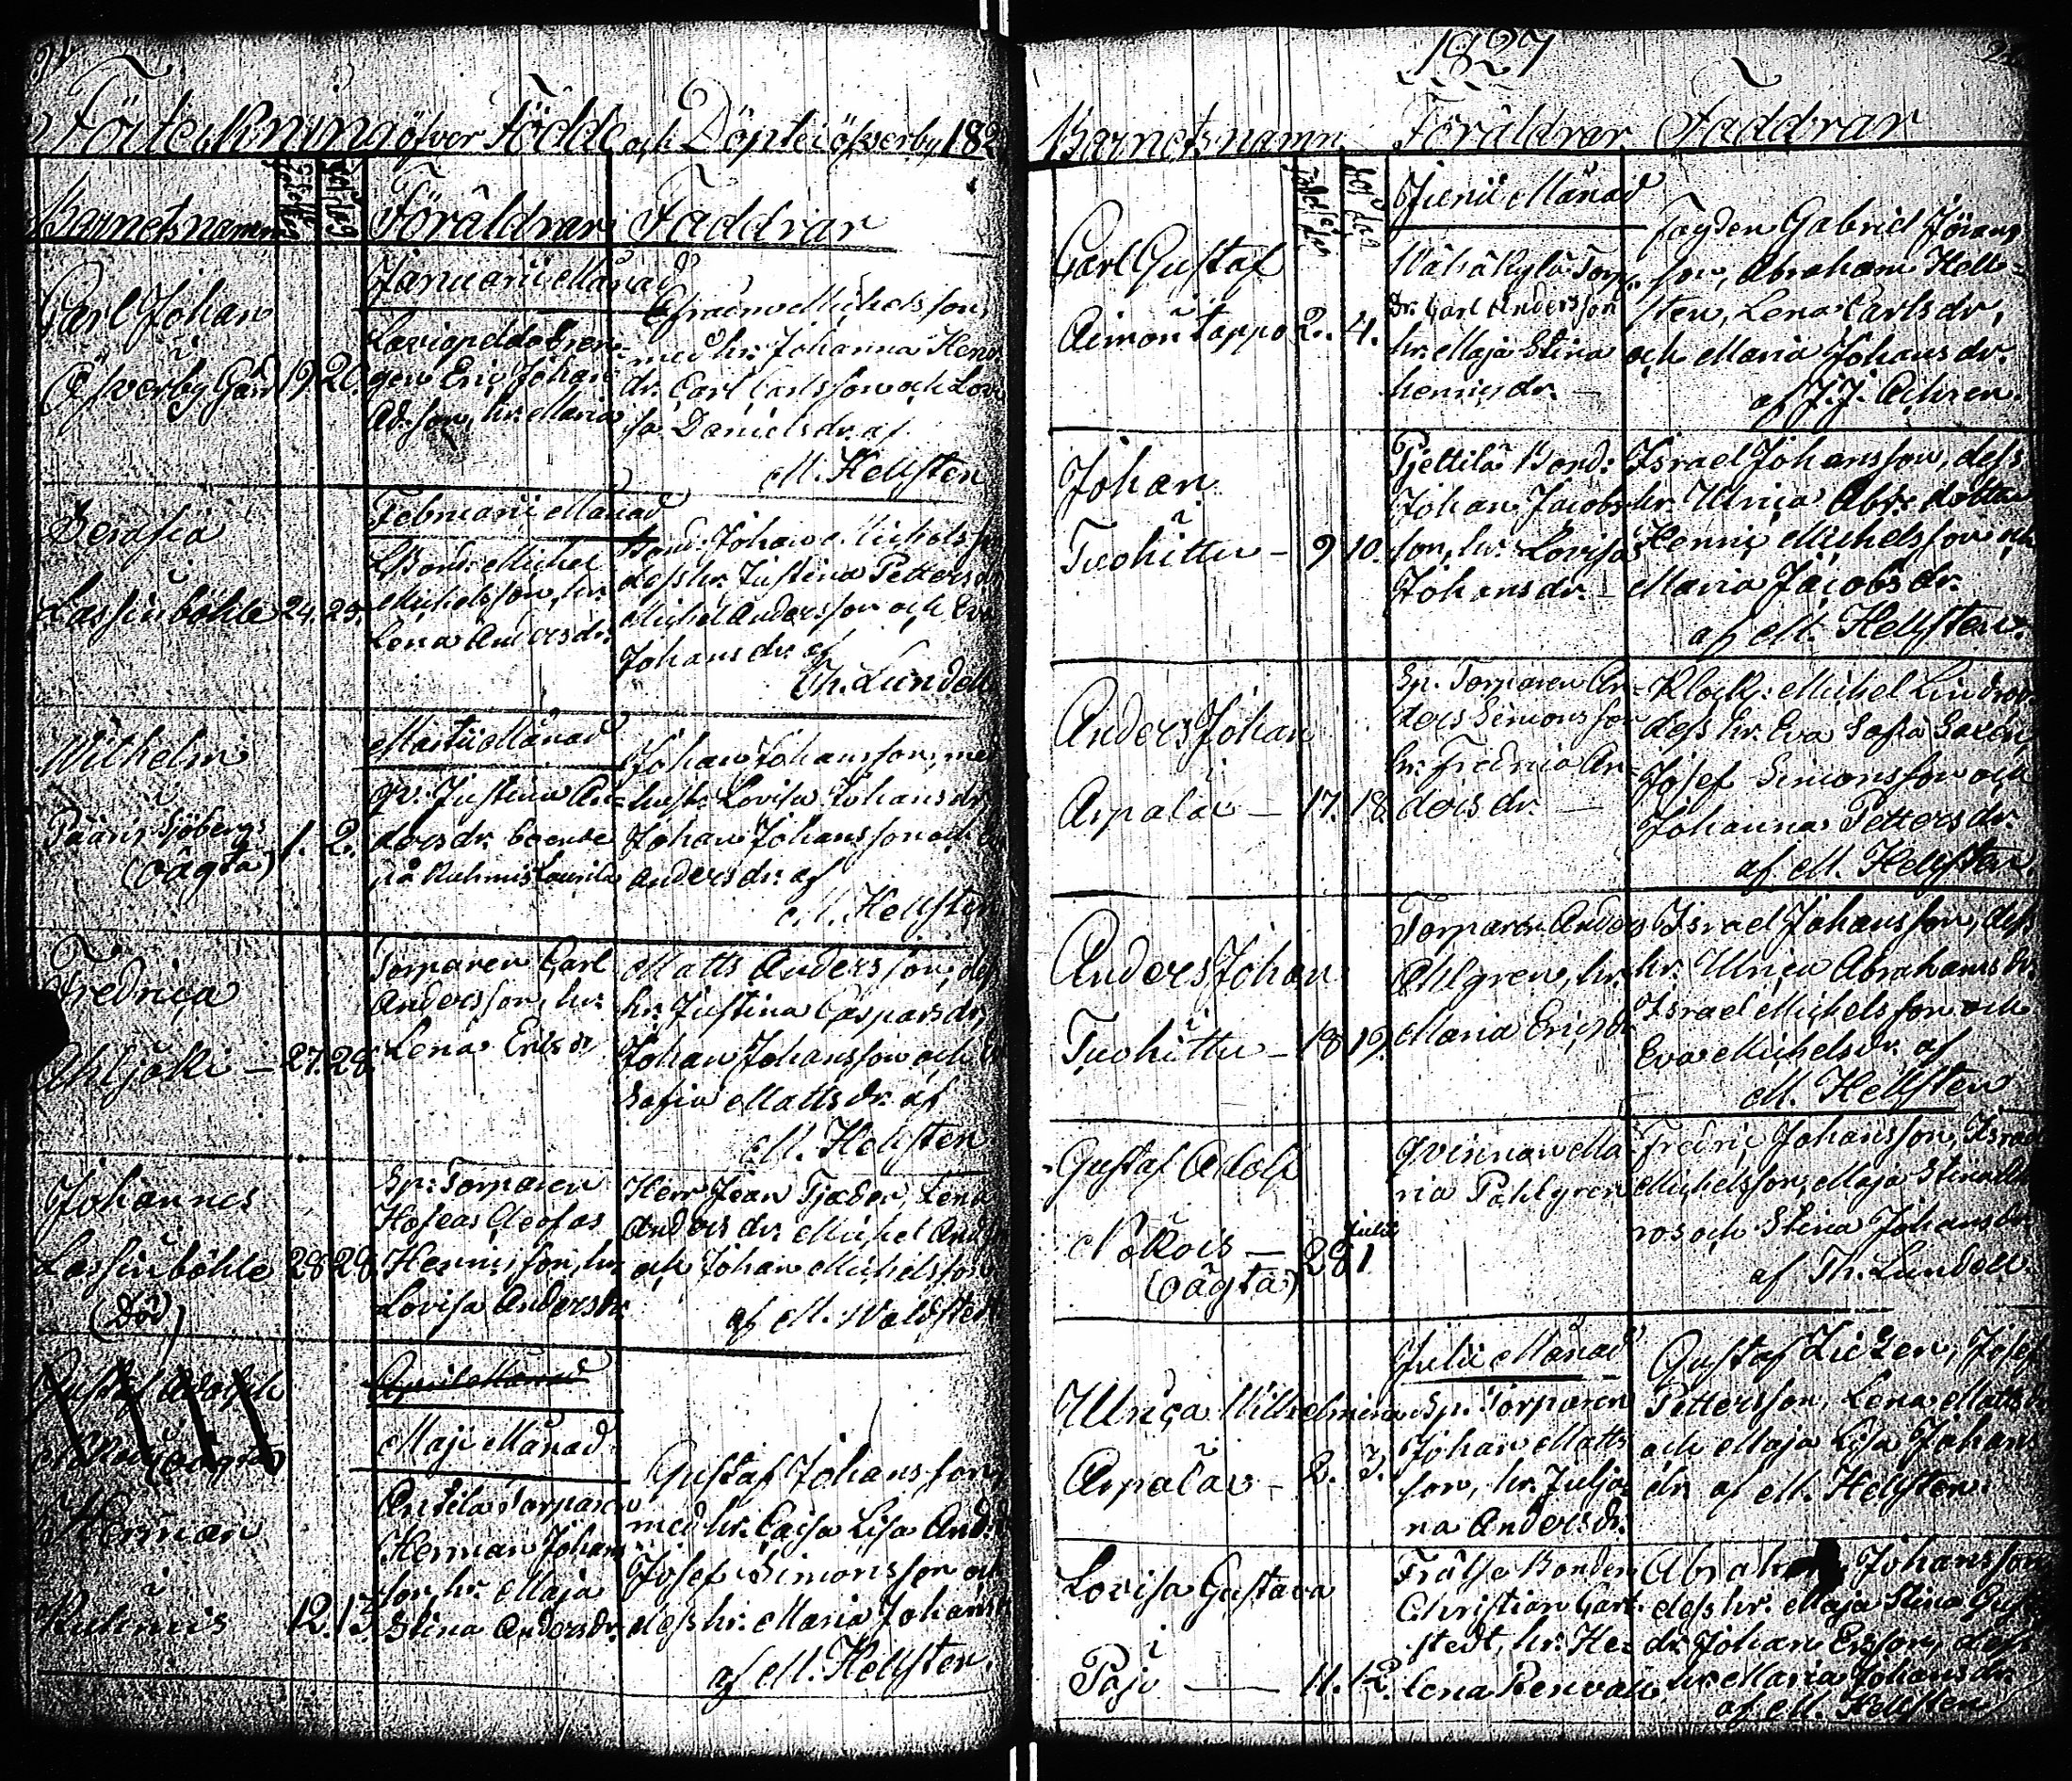 Förteckning öfver Födde och Döpte i Öfverby 182
Barnets namn Föräldrar Faddrar
Januarii Månad
Carl Johan
Öfverby Gård 19 20.
gen Eric Johan
Ad:son, hr. Maria
Efraim Michelsson,
med hr. Johanna Henr:
dr. Carl Carlsson och Lovi
sa Danielsdr. af
M. Hellsten
Februarii Månad
Serafia
Lassinböhle 24. 25.
Bond: Michel
Michelsson, hr.
Lena Andersdr.
Bond: Johan Michelsson
dess hr. Justina Pettersdr
Michel Andersson och Eva
Johansdr. af
Th. Lundell
Martii Månad
Wilhelm
Pääri Sjöbergs
(oägta) 1. 2.
qv: Justina An=
dersdr. boende
på Ruhmis Laurila
Johan Johansson, med
hustr. Lovisa Johansdr
Johan Johansson och
Andersdr. af
M. Hellsten
Fredrica
Ahljoki — 27. 28.
Torparen Carl
Andersson, hr.
Lena Ericsdr
Matts Andersson, dess
hr. Justina Caspersdr,
Johan Johansson och
Sofia Mattsdr. af
M. Hellsten
Johannes
Lassinböhle 28 28
(Död)
Sp: Torparen
Hoseas Cleofas
Henricsson, hr.
Lovisa Andersdr.
Herr Jean Tjäder, Lena
Andersdr. Michel And
och Johan Michelsson
af M. Waldstedt
April Månad
Gustaf Adolph
Nåkois (oägta)
Maji Månad
Herman
Ruhmis 12. 13
Anttila Torparen
Herman Johans
son, hr. Maja
Stina Andersdr.
Gustaf Johansson,
med hr. Caisa Lisa And:
Josef Simonsson och
dess hr. Maria Johans
af M. Hellsten.
1827
Barnets namn Föräldrar Faddrar
Junii Månad
Carl Gustaf
Aimontappo 2. 4.
Wähäkylä Torp:
Dr. Carl Andersson
hr. Maja Stina
Henricsdr. —
Fogden Gabriel Jörans
son, Abraham Hell=
sten, Lena Carlsdr,
och Maria Johansdr.
af J. J. Achren.
Johan
Tuohittu — 9 10.
Pjettilä Bond:
Johan Jacobs
son, hr. Lovisa
Johansdr. —
Israel Johansson, dess
hr. Ulrica Abr: dotter
Henric Michelsson och
Maria Jacobsdr.
af M. Hellsten.
Anders Johan
Arpalai — 17. 18.
Sp. Torparen An=
ders Simonsson
hr. Fredrica An=
dersdr. —
Klock: Michel Lindroos
dess hr. Eva Sofia Saxén,
Josef Simonsson och
Johanna Pettersdr.
af M. Hellsten
Anders Johan
Tuohittu — 18 19.
Torparen Anders
Ahlgren, hr.
Maria Ericsdr.
Israel Johansson, dess
hr. Ulrica Abrahamsdr.
Israel Michelsson och
Eva Michelsdr. af
M. Hellsten
Gustaf Adolf
Nåkois — 28 Julii 1
(oägta)
Qvinnan Ma
ria Pahlgren
Fredric Johansson, Israel
Michelsson, Maja Stina
ros och Stina Johansdr
af Th. Lundell
Julii Månad
Ulrica Wilhelmina
Arpalai — 2. 3.
Sp. Torparen
Johan Matts
son, hr. Julja=
na Andersdr.
Gustaf Lizen, Josef
Pettersson, Lena Mattsdr
och Maja Lisa Johans
dr. af M. Hellsten.
Lovisa Gustava
Pajo — 11. 12.
Frälse Bonden
Christian Carl=
stedt, hr. He=
lena Renvall
Abraham Johansson
dess hr. Maja Stina Gust
dr. Johan Ersson, dess
hr. Maria Johansdr.
af M. Hellsten